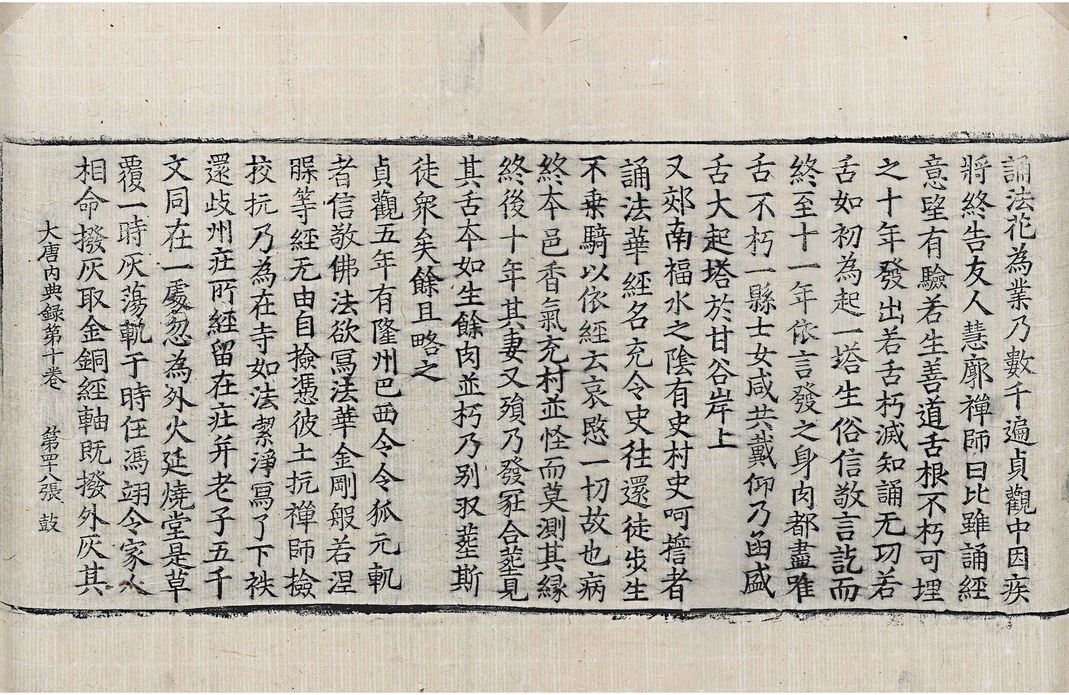 誦法花為業乃數千遍貞觀中因疾
將終告友人慧廓禪師曰比雖誦經
意望有驗若生善道舌根不朽可埋
之十年發出若舌朽滅知誦无功若
舌如初為起一塔生俗信敬言訖而
終至十一年依言發之身肉都盡唯
舌不朽一縣士女咸共戴仰乃函盛
舌大起塔於甘谷岸上
又郊南福水之陰有史村史呵擔者
誦法華經名充令史往還徒步生
不乗騎以依經云哀愍一切故也病
終本邑香氣充村並怪而莫測其縁
終後十年其妻又殞乃發冢合塟見
其舌夲如生餘肉並朽乃别𭣣塟斯
徒衆矣餘且略之
貞觀五年有隆州巴西令令狐元軌
者信敬佛法欲寫法華金剛般若涅
槃等經无由自撿憑彼土抗禪師撿
挍抗乃為在寺如法潔淨寫了下袟
還歧州庄所經留在庄并老子五千
文同在一處忽為外火延燒堂是草
覆一時灰蕩軌于時任馮翊令家人
相命撥灰取金銅經軸既撥外灰其
大唐内典録第十卷 第四十八張 鼓